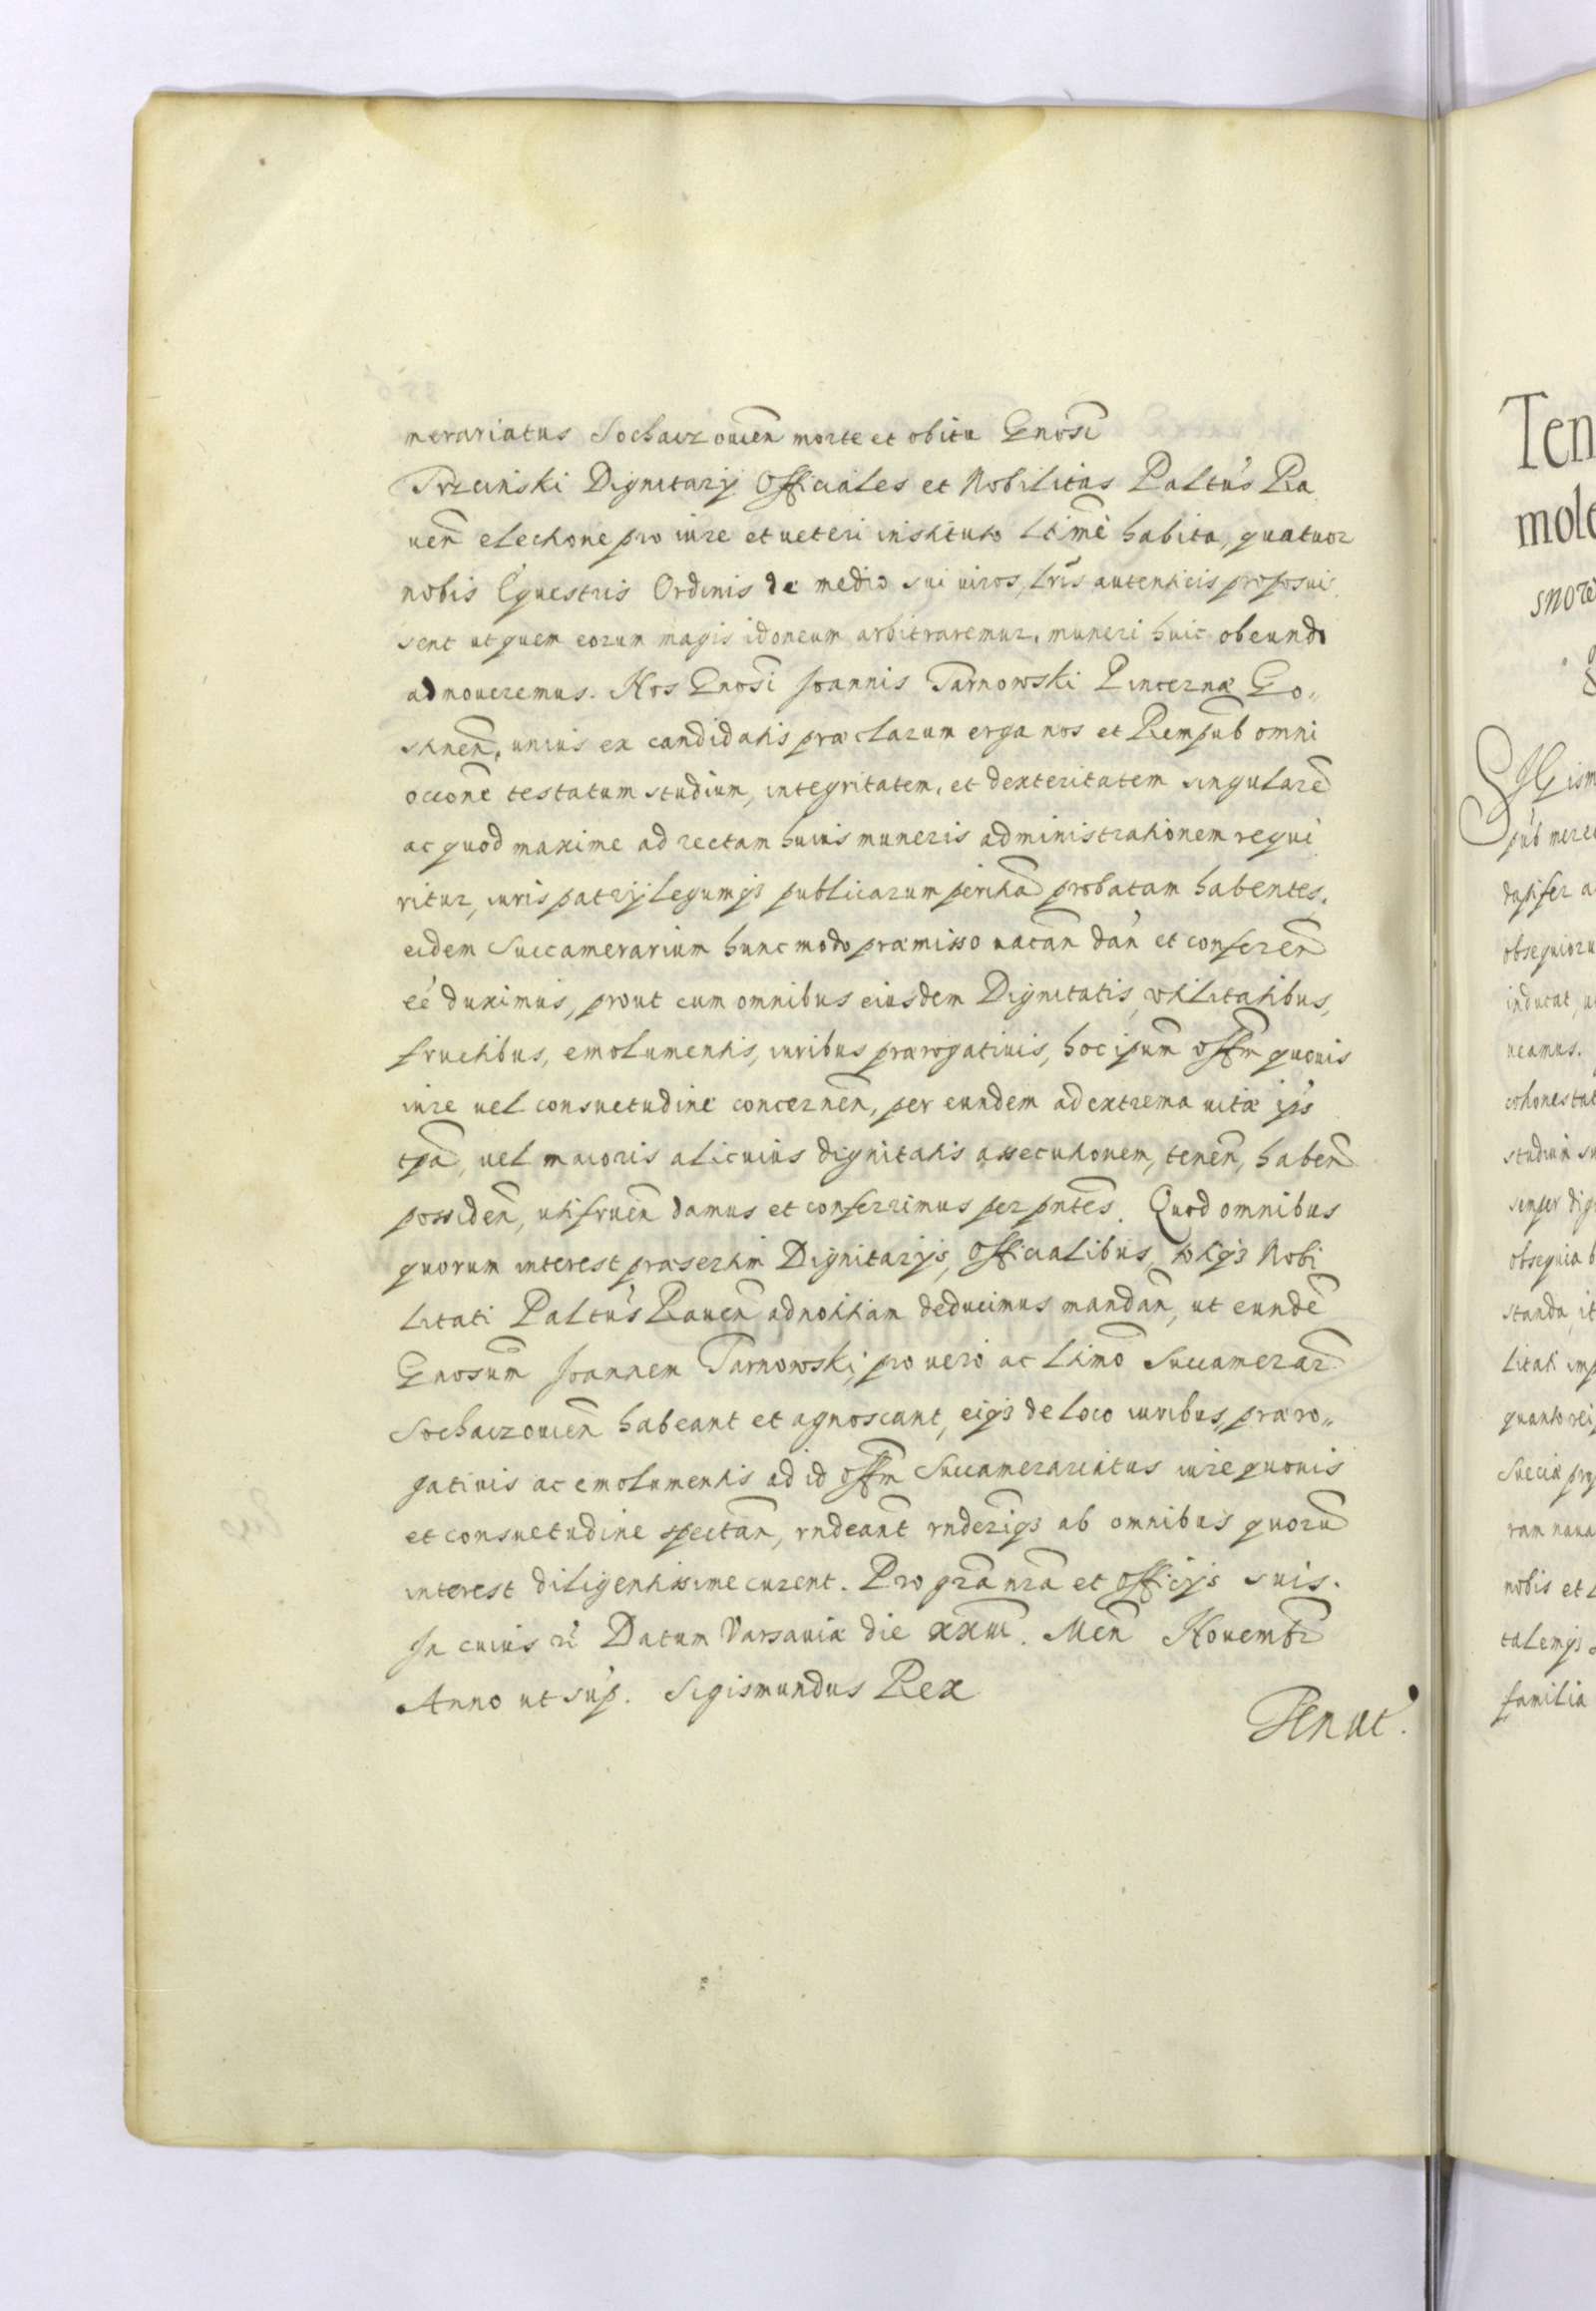 merariatus Sochaczouien morte et obitu Gnosi
Trzcinski Dignitarij Officiales et Nobilitas Paltus Ra
uen electione pro iure et ueteri instituto ltime habita, quatuor
nobis Equestris Ordinis de medio sui uiros, lris autenticis proposuis
sent ut quem eorum magis idoneum arbitraremur, muneri huic obeundo
admoueremus. Nos Gnosi Joannis Tarnowski Pincernæ Go„
stinen, unius ex candidatis præclarum erga nos et Rempub omni
occone testatum studium, integritatem, et dexteritatem singulare
ac quod maxime ad rectam huius muneris administrationem requi
ritur, iuris patrij legumqs publicarum peritia probatam habentes,
eidem Succamerarium hunc modo præmisso uacan dan et conferen
eé duximus, prout cum omnibus eiusdem Dignitatis, vtilitatibus,
fructibus, emolumentis, iuribus prærogatiuis, hoc ipsum offm quouis
iure uel consuetudine concernen, per eundem ad extrema uitæ ips
tpa, uel maioris alicuius dignitatis assecutionem, tenen, haben
possiden, utifruen damus et conferrimus per pntes. Quod omnibus
quorum interest præsertim Dignitarijs, Officialibus, totiqs Nobi
litati Paltus Rauen ad notitiam deducimus mandan, ut eunde
Gnosum Joannem Tarnowski, pro uero ac ltimo Succamerar
Sochaczouien habeant et agnoscant, eiqs de loco iuribus, præro„
gatiuis ac emolumentis ad id offm Succamerariatus iure quouis
et consuetudine spectan, rndeant rnderiqs ab omnibus quoru
interest diligentissime curent. Pro gra nra et officijs suis.
In cuius rei Datum Varsauiæ die xxiii. Men Nouembr
Anno ut sup. Sigismundus Rex
Tenut.
Ten
mole
Sigism
pub mere
dapifer a
obsequioru
inducat, u
ueamus.
cohonestat
studium su
semper dig
obsequia b
standa, it
litati imp
quanto rei
Sueciæ pro
ram naua
nobis et
talemqs
familia